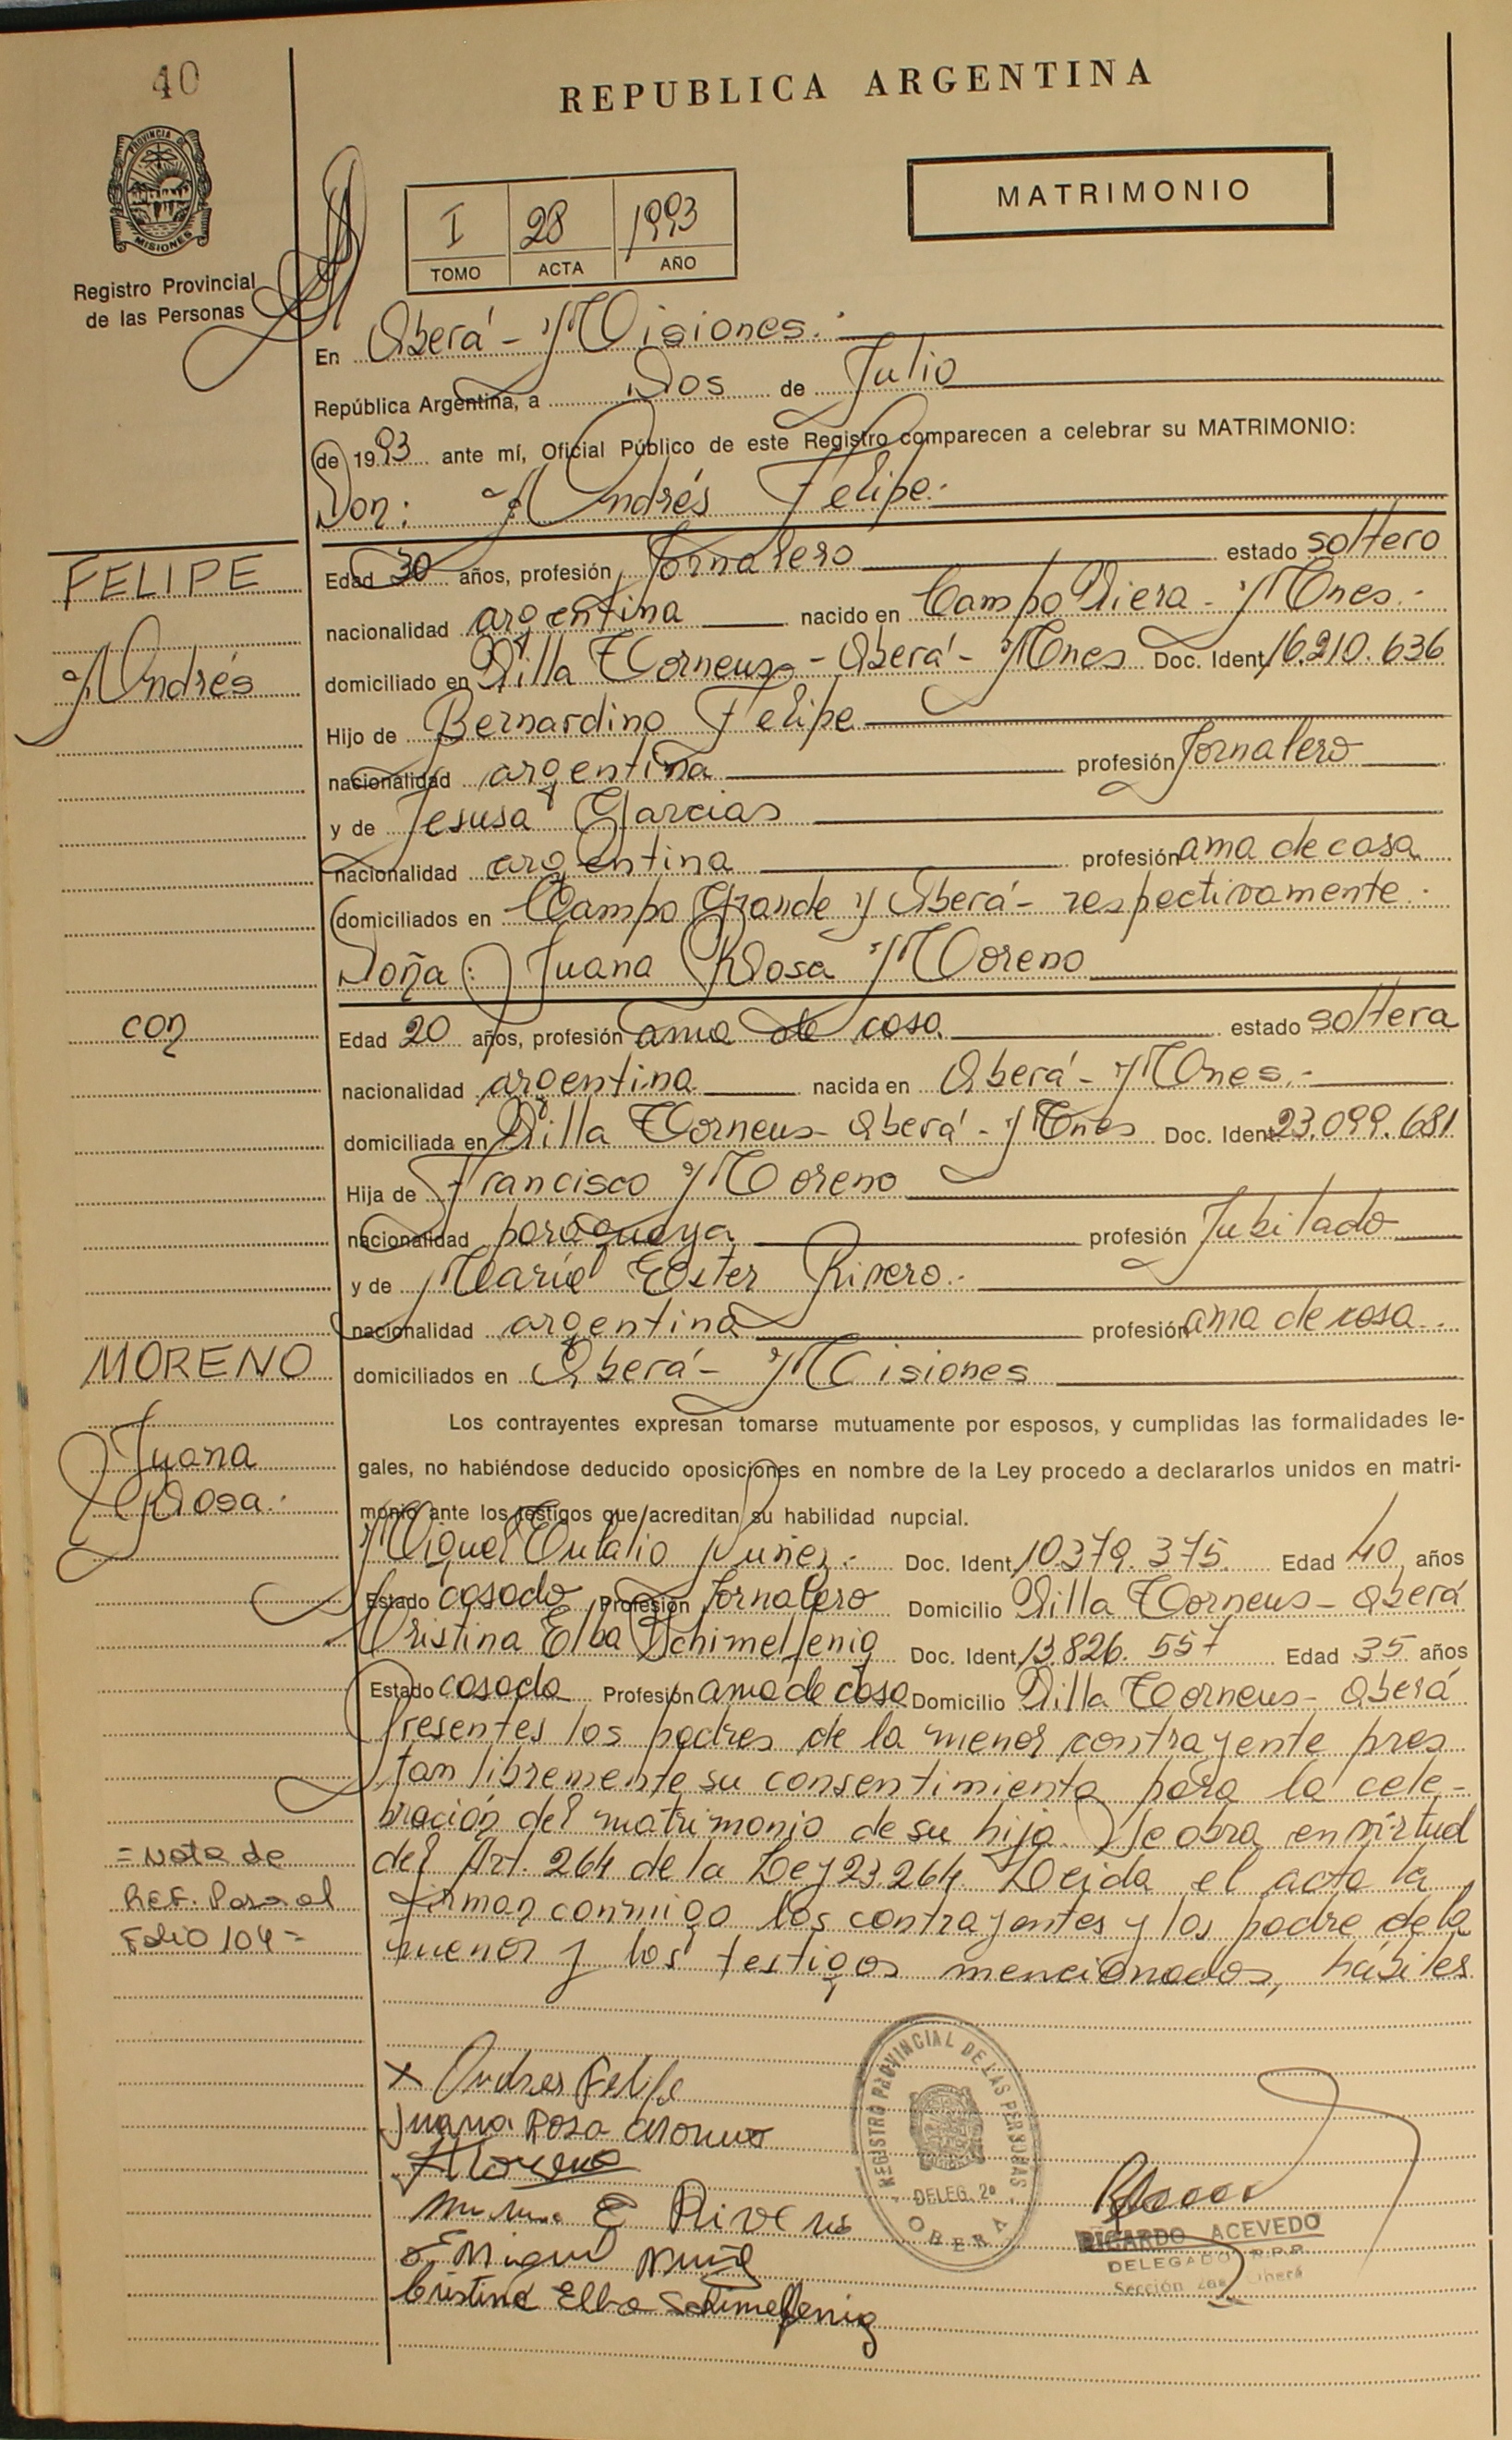 40
REPUBLICA ARGENTINA
PROVINCIA DE
MISIONES
Registro Provincial
de las Personas
I 28 1993
TOMO ACTA AÑO
MATRIMONIO
En Oberá - Misiones.-
República Argentina, a Dos de Julio
de 1993 ante mí, Oficial Público de este Registro comparecen a celebrar su MATRIMONIO:
Don: Andrés Felipe.-
FELIPE
Andrés
Edad 30 años, profesión Jornalero estado soltero
nacionalidad argentina nacido en Campo Viera - Mnes.-
domiciliado en Villa Torneus - Oberá - Mnes Doc. Ident. 16.210.636
Hijo de Bernardino Felipe
nacionalidad argentina profesión Jornalero
y de Jesusa Garcias
nacionalidad argentina profesión ama de casa
domiciliados en Campo Grande y Oberá - respectivamente.
Doña: Juana Rosa Moreno
con
Edad 20 años, profesión ama de casa estado soltera
nacionalidad argentina nacida en Oberá - Mnes.-
domiciliada en Villa Torneus - Oberá - Mnes Doc. Ident. 23.099.681
Hija de Francisco Moreno
nacionalidad paraguaya profesión Jubilado
y de María Ester Rivero.-
nacionalidad argentina profesión ama de casa.
domiciliados en Oberá - Misiones
MORENO
Juana
Rosa.-
Los contrayentes expresan tomarse mutuamente por esposos, y cumplidas las formalidades le-
gales, no habiéndose deducido oposiciones en nombre de la Ley procedo a declararlos unidos en matri-
monio ante los testigos que acreditan su habilidad nupcial.
Miguel Eulalio Nuñez.- Doc. Ident. 10.379.375. Edad 40 años
Estado casado Profesión Jornalero Domicilio Villa Torneus - Oberá
Cristina Elba Schimelfenig Doc. Ident. 13.826.557 Edad 35 años
Estado casada Profesión ama de casa Domicilio Villa Torneus - Oberá
Presentes los padres de la menor contrayente pres
tan libremente su consentimiento para la cele-
bración del matrimonio de su hija. Se obra en virtud
del Art. 264 de la Ley 23.264. Leída el acta la
firman conmigo los contrayentes y los padre de la
menor y los testigos mencionados, hábiles
= Nota de
Ref. Pasa al
Folio 104 =
x Andres Felipe
Juana Rosa Moreno
Moreno
E Rivero
Miguel Nuñez
Cristina Elba Schimelfenig
REGISTRO PROVINCIAL DE LAS PERSONAS
DELEG. 2ª
OBERA
RICARDO ACEVEDO
DELEGADO R.P.P.
Sección 2da Oberá